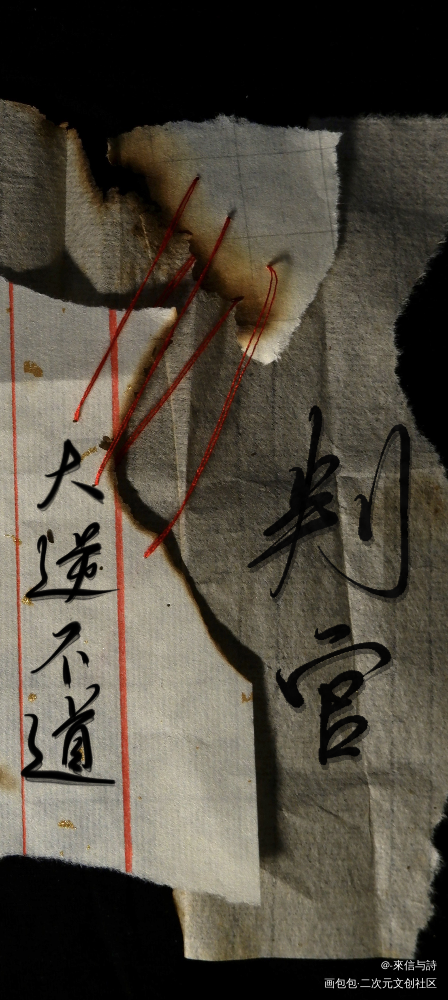 判官
大逆不道
@-來信与詩
画包包·二次元文创社区